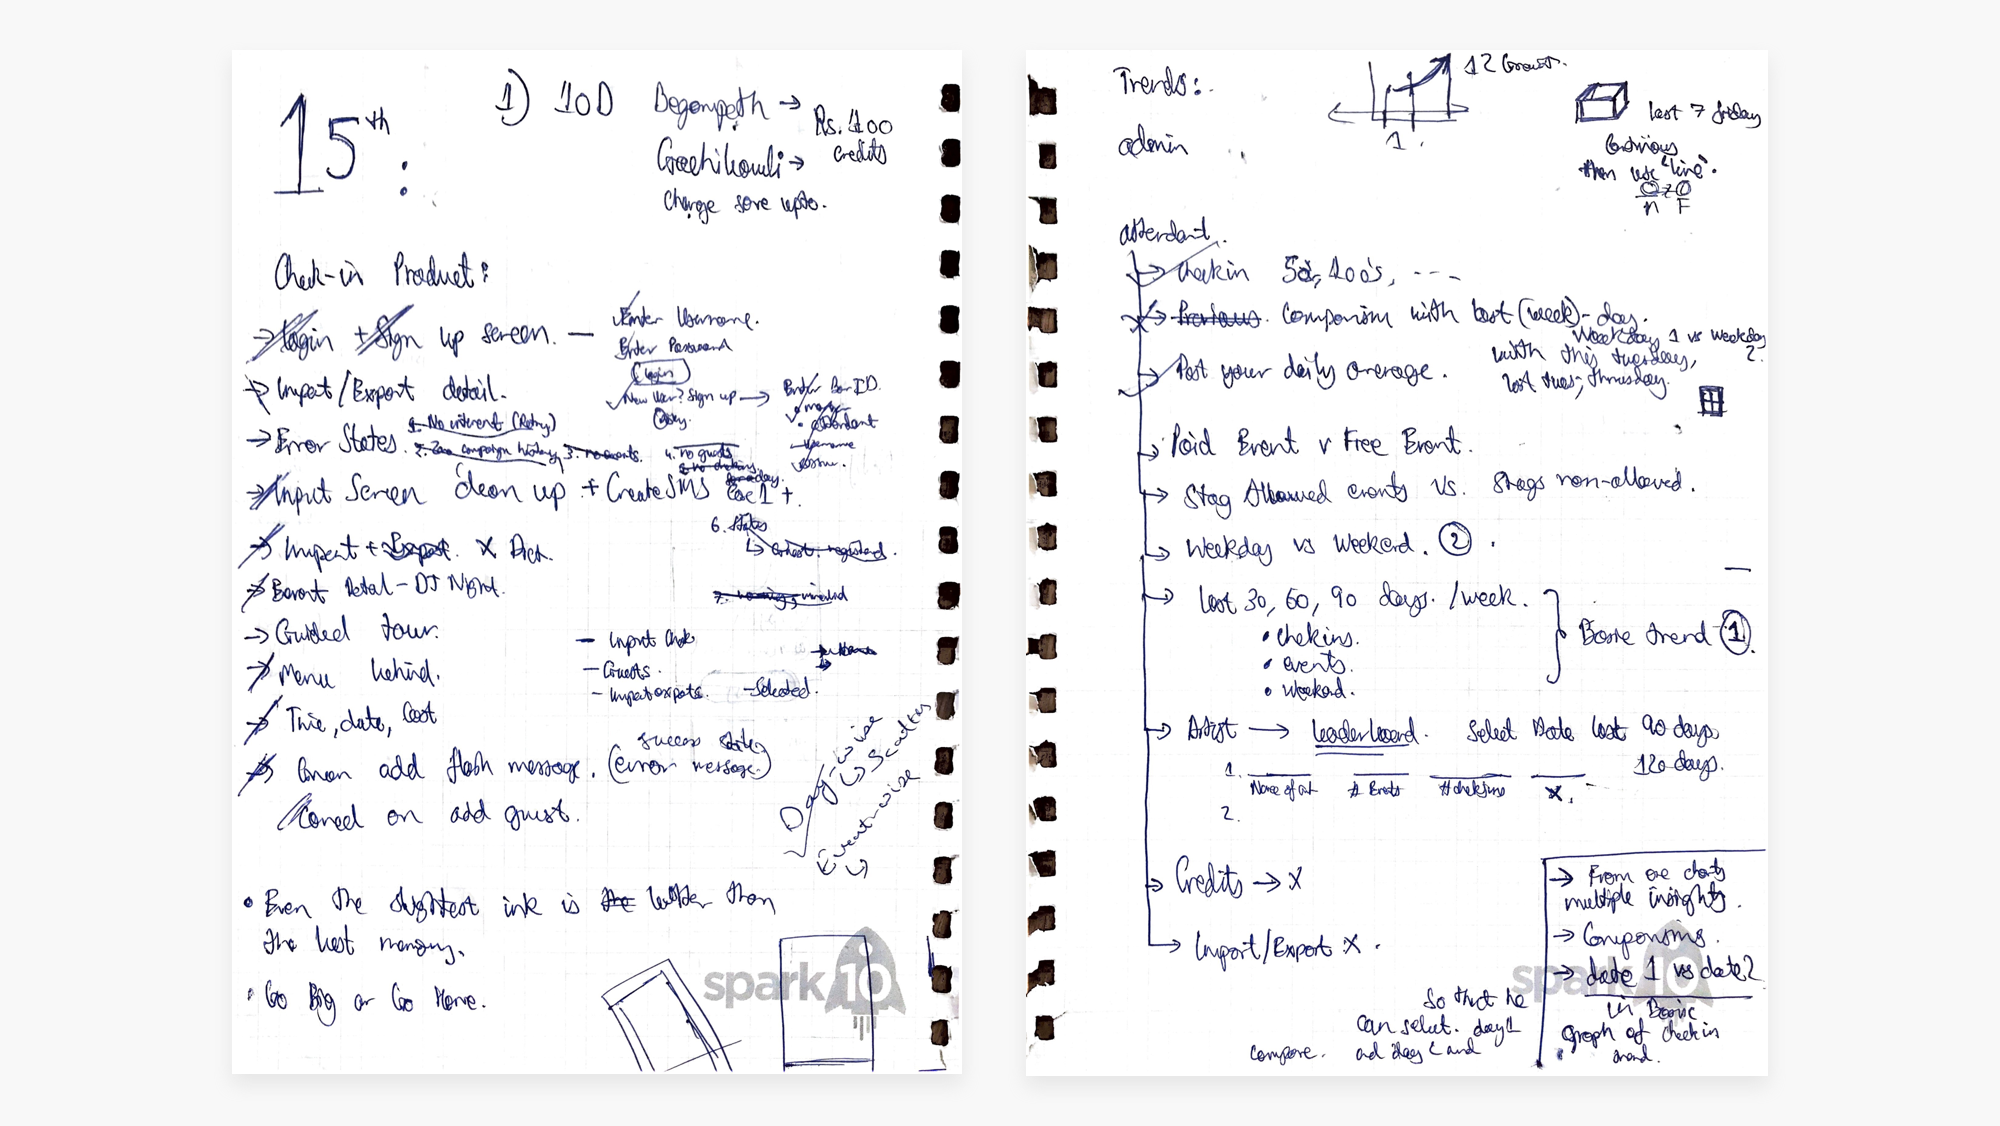 15th:
1) 10D Begumpeth →
Rs. 100
credits
Gachibowli →
Change some upto.
Check-in Product:
→ Login + Sign up screen. —
Enter Username.
Enter Password
Login
New User? Sign up →
Enter Bar ID.
• attendant
→ Import/Export detail.
→ Error States.
1. No internet (Retry)
2. Zero campaign history
3. no events.
4. no guests
→ Input Screen clean up + Create SMS
6. States
↳ Guest registered.
→ Import + Export. X
→ Event Detail - DJ Night.
→ Guided tour.
→ Menu behind.
→ Time, date, cost
- Guests.
- Import exports.
- Selected.
success state
→ add flash message. (error message)
Cancel on add guest.
Day-wise
↳ Scatter
Event-wise
↳
• Even the slightest ink is the better than
the best memory.
• Go Big or Go Home.
spark10
Trends:
12
1
admin
last 7 friday
Continious
then use "line".
n F
attendant.
→ checkin 50, 100's, ----
→ Previous. Comparism with last (week)-day.
Weekday 1 vs weekday
2.
with this tuesday,
last tues, thursday.
→ Past your daily average.
→ Paid Event v Free Event.
→ Stag Allowed events vs. Stags non-allowed.
→ Weekday vs Weekend. 2
→ last 30, 60, 90 days. /week.
• chekins.
• events.
• weekend.
Basic trend 1
→ Artist → leaderboard. Select Date last 90 days
120 days.
1.
Name of art # Events # chekins X.
2.
→ Credits → X
→ Import/Export X.
→ From one charts
multiple insights.
→ Comparisms.
→ date 1 vs date 2
in Basic
graph of checkin
So that he
can select. day 1
and day 2 and
compare.
spark10